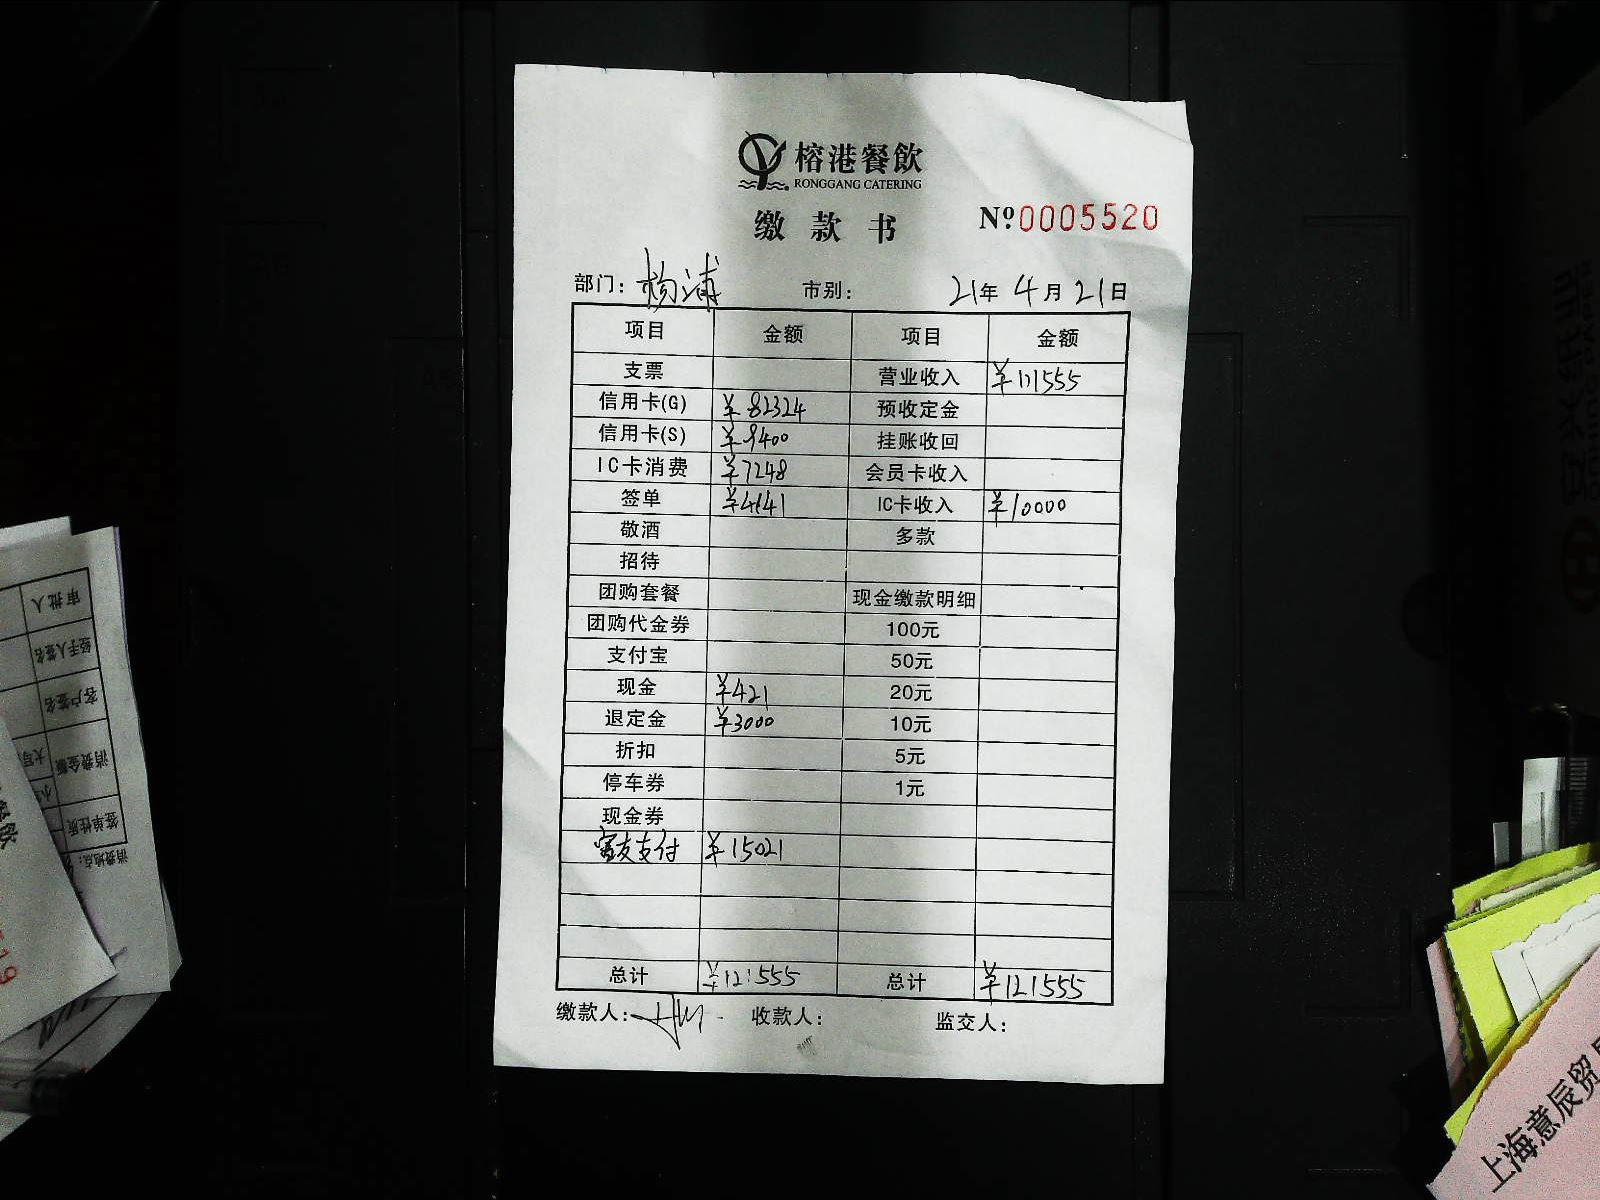 榕港餐飲
RONGGANG CATERING
缴款书
Nº 0005520
部门：杨浦 市别： 21年4月21日
项目 金额 项目 金额
支票 营业收入 ¥111555
信用卡(G) ¥82324 预收定金
信用卡(S) ¥9400 挂账收回
IC卡消费 ¥7248 会员卡收入
签单 ¥4141 IC卡收入 ¥10000
敬酒 多款
招待
团购套餐 现金缴款明细
团购代金券 100元
支付宝 50元
现金 ¥421 20元
退定金 ¥3000 10元
折扣 5元
停车券 1元
现金券
富友支付 ¥15021
总计 ¥121555 总计 ¥121555
缴款人： 收款人： 监交人：
审批人
经手人签名
客户签名
消费金额
签单性质
消费地点：
上海意辰贸